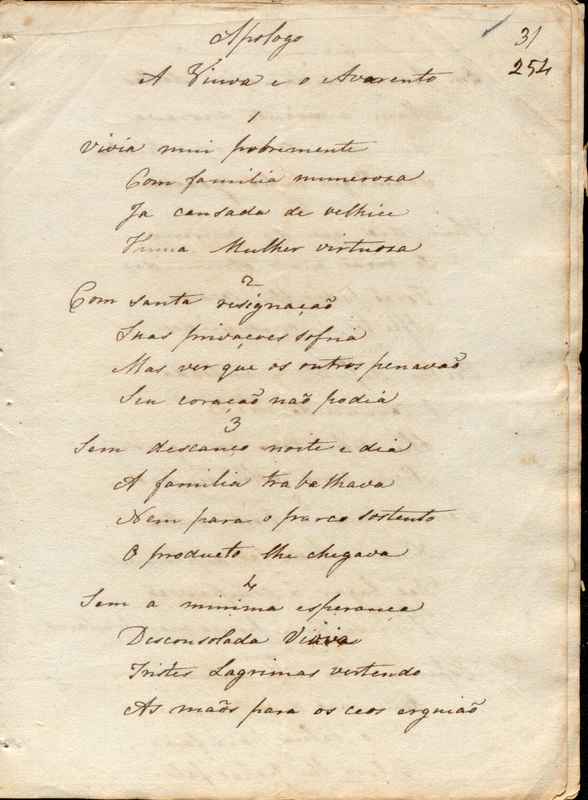 Apologo
31
254
A Viuva e o Avarento
1
Vivia mui pobremente
Com familia numeroza
Ja cansada de velhice
Huma Mulher virtuoza
2
Com santa resignação
Suas privaçoes sofria
Mas ver que os outros penavaõ
Seu coração naõ podia
3
Sem descanço noite e dia
A familia trabalhava
Nem para o parco sostento
O producto lhe chegava
4
Sem a minima esperança
Desconsolada
Tristes Lagrimas vertendo
As maõs para os ceos erguiaõ